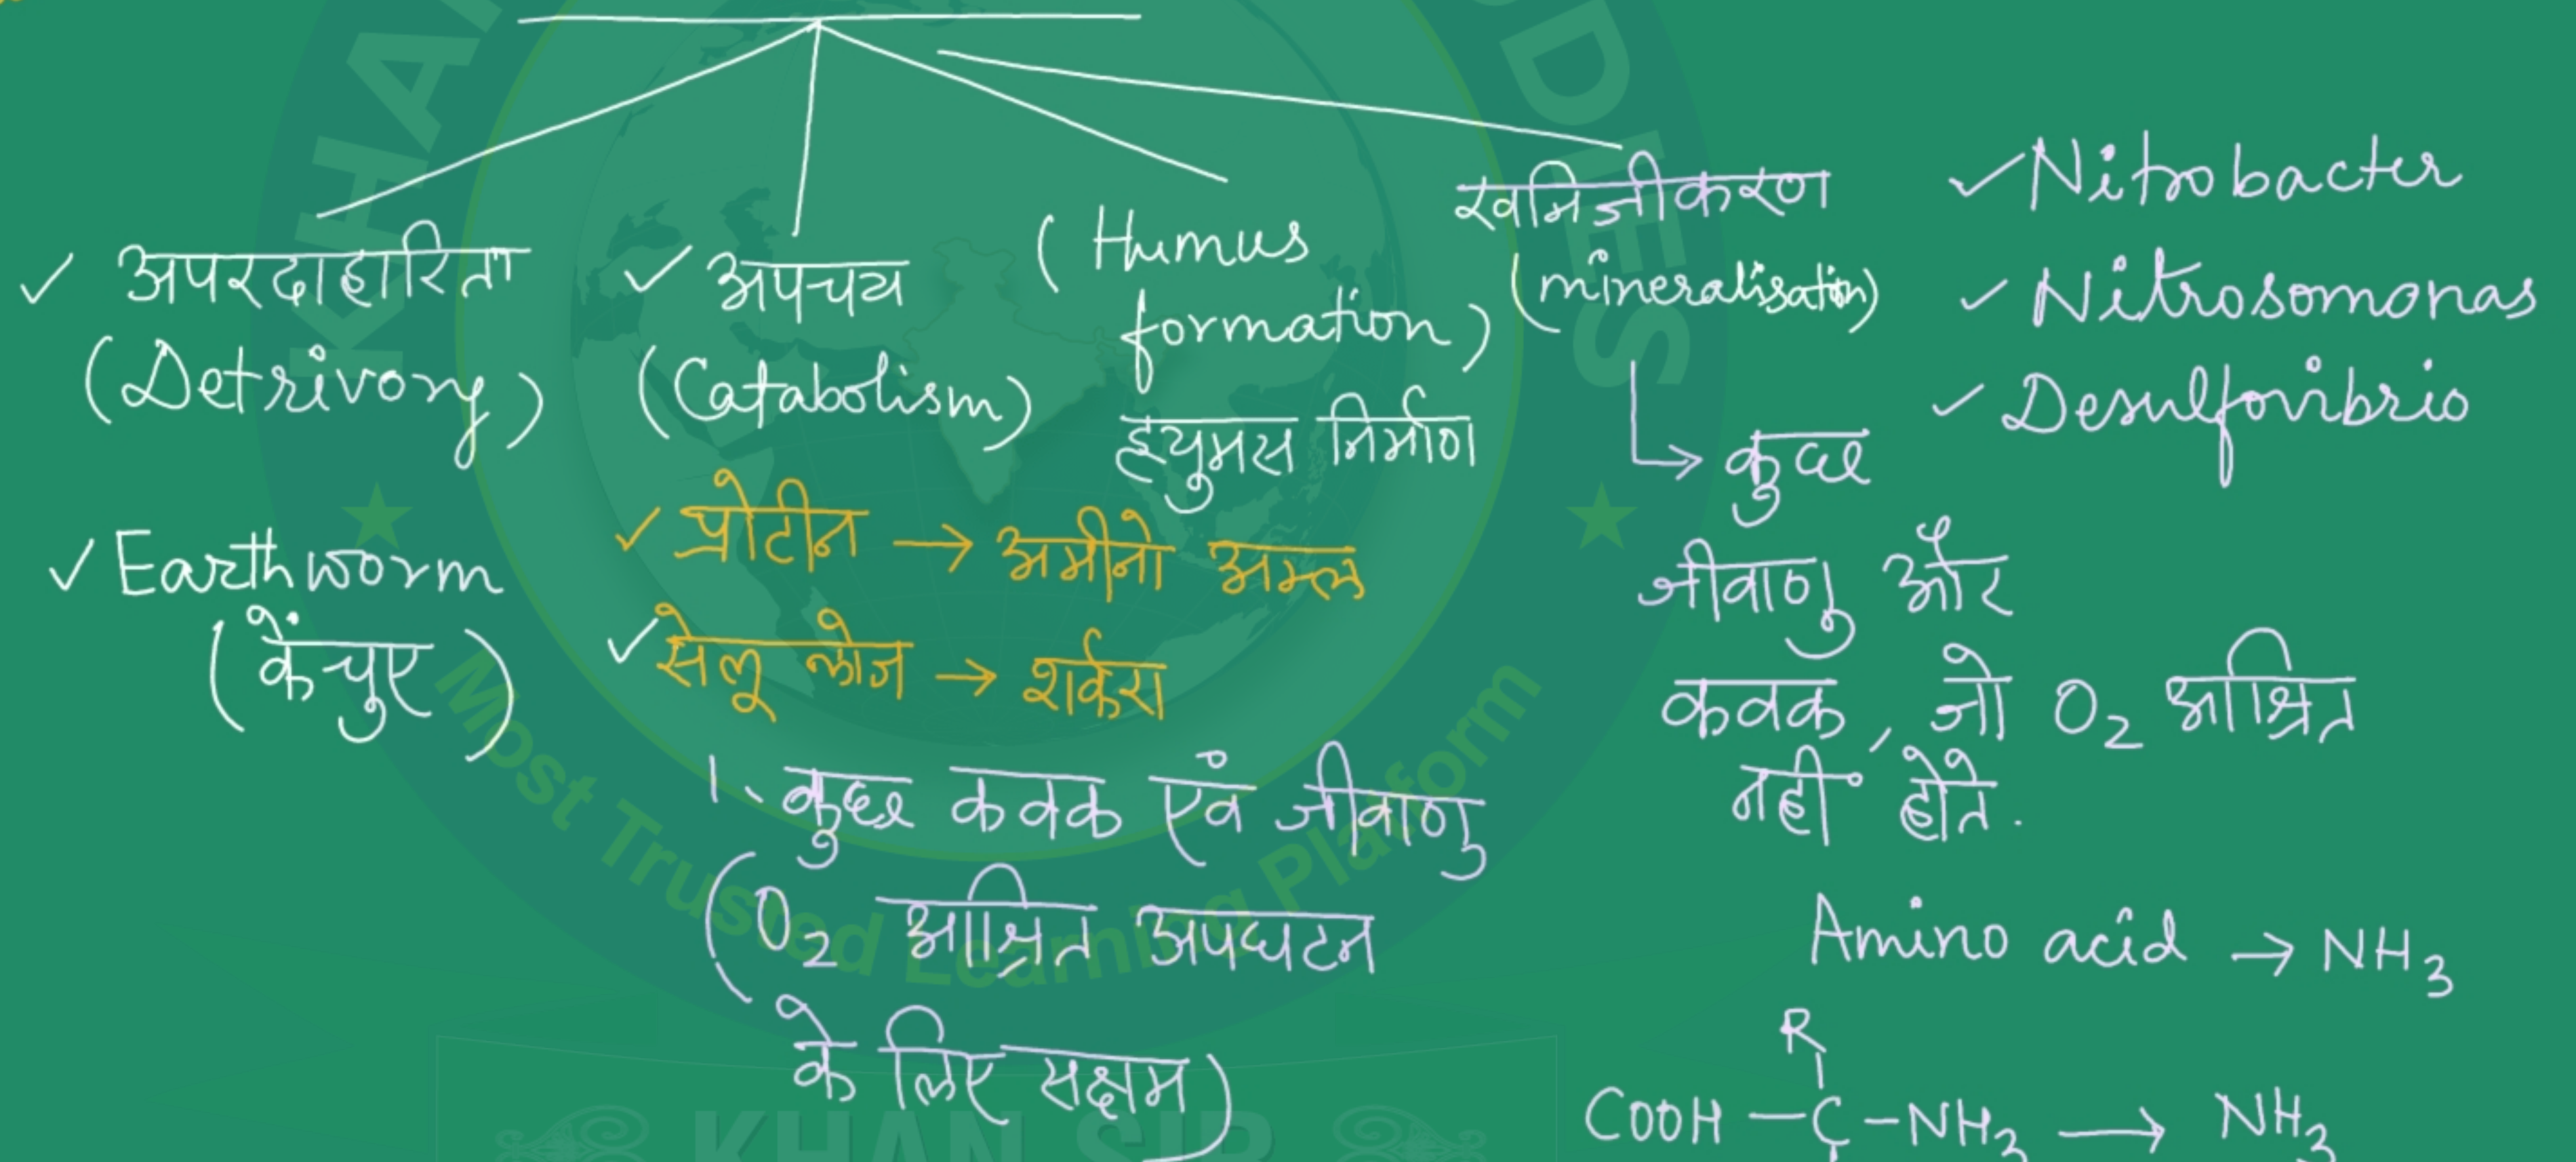 ✓ अपरदाहारिता
(Detrivory)
✓ Earthworm
(केंचुए)
✓ अपचय
(Catabolism)
✓ प्रोटीन → अमीनो अम्ल
✓ सेलूलोज → शर्करा
1. कुछ कवक एवं जीवाणु
(O₂ आश्रित अपघटन
के लिए सक्षम)
(Humus
formation)
ह्युमस निर्माण
खनिजीकरण
(mineralisation)
↳ कुछ
जीवाणु और
कवक, जो O₂ आश्रित
नहीं होते.
Amino acid → NH₃
R
COOH – C – NH₂ → NH₃
✓ Nitrobacter
✓ Nitrosomonas
✓ Desulfovibrio
Most Trusted Learning Platform
KHAN SIR